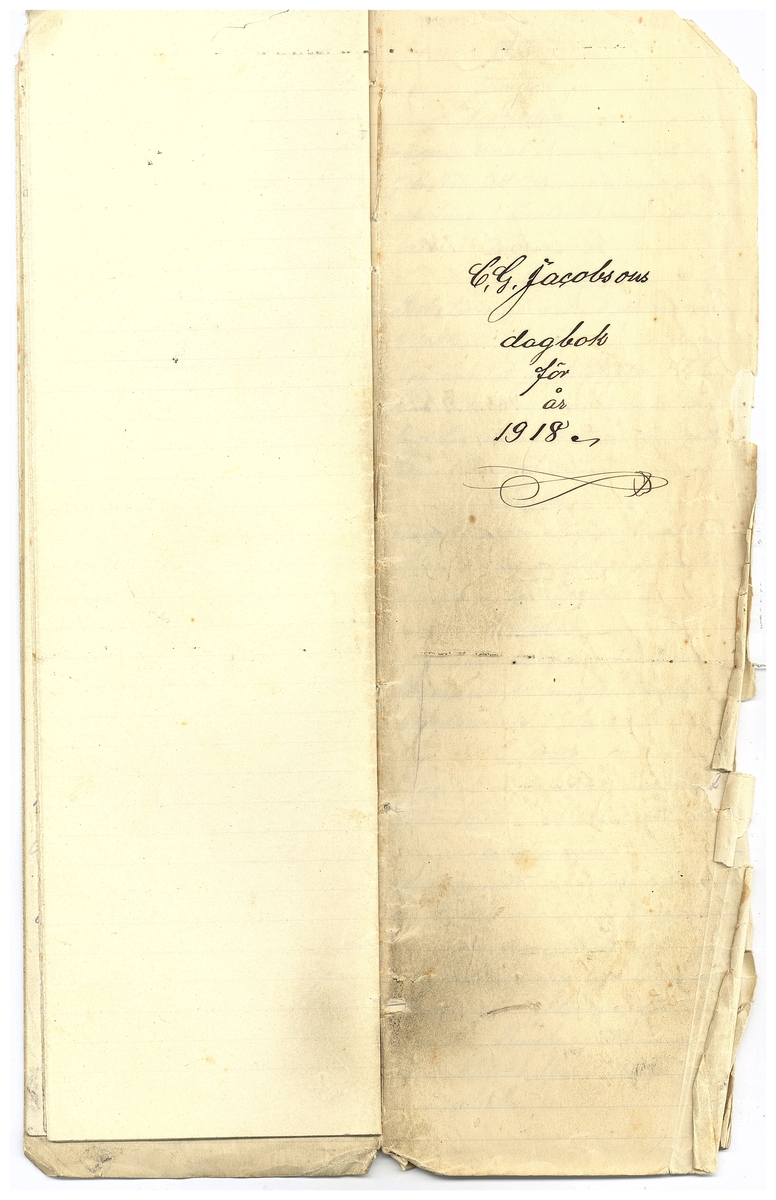 C. G. Jacobsons
dagbok
för
år
1918.